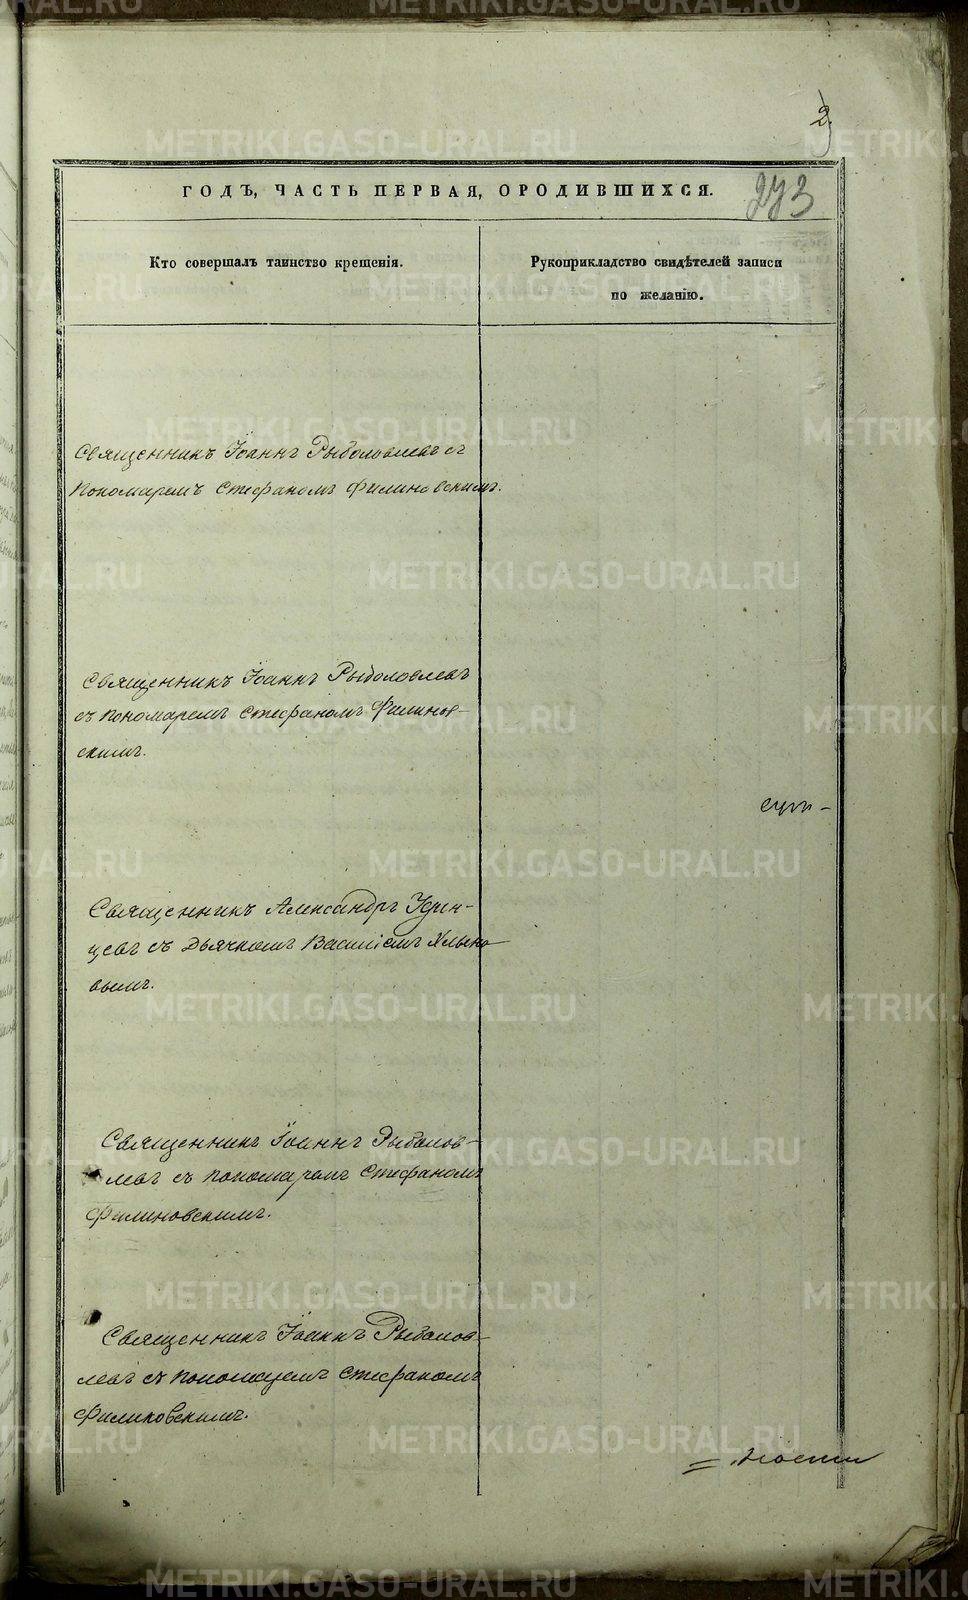 2
273
ГОДЪ, ЧАСТЬ ПЕРВАЯ, ОРОДИВШИХСЯ.
Кто совершалъ таинство крещенія.
Рукоприкладство свидѣтелей записи
по желанію.
Священникъ Іоаннъ Рыболовлевъ съ
Пономаремъ Стефаномъ Филиновскимъ.
Священникъ Іоаннъ Рыболовлевъ
съ пономаремъ Стефаномъ Филинов-
скимъ.
Священникъ Александръ Удин-
цевъ съ Дьячкомъ Василіемъ
вымъ.
Священникъ Іоаннъ Рыболов-
левъ съ пономаремъ Стефаномъ
Филиновскимъ.
Священникъ Іоаннъ Рыболов-
левъ съ пономаремъ Стефаномъ
Филиновскимъ.
METRIKI.GASO-URAL.RU